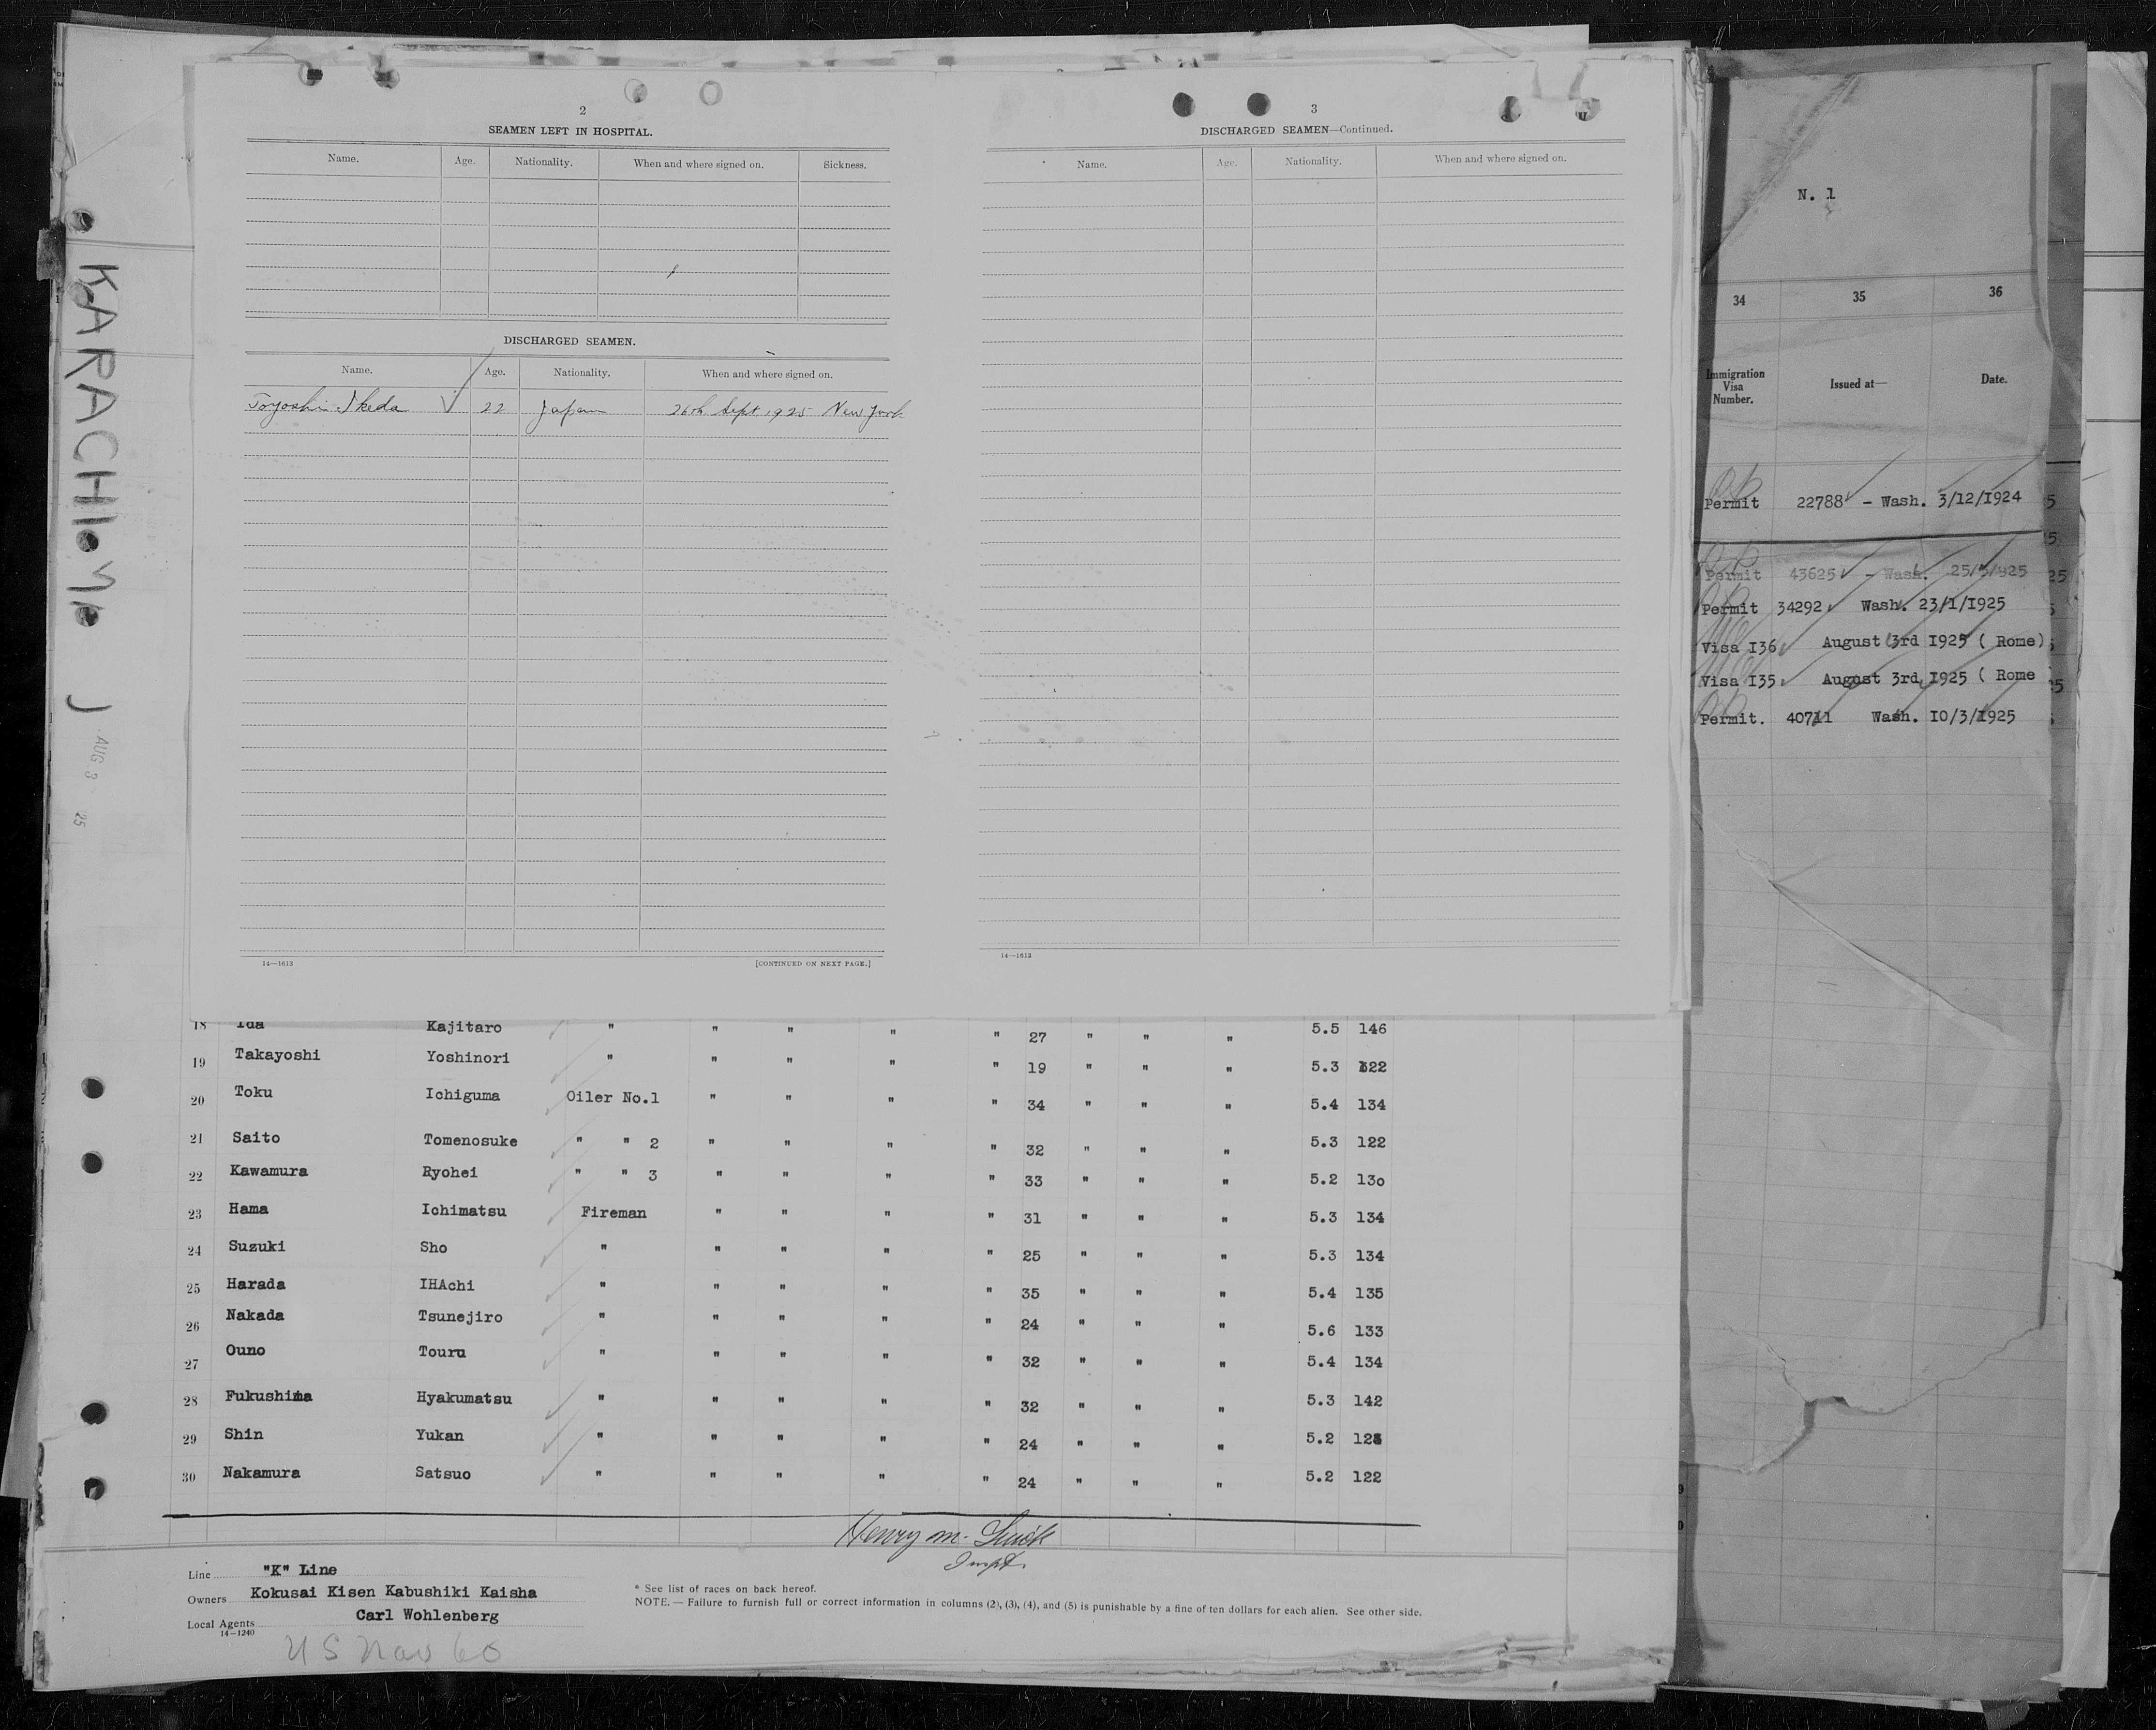 2
SEAMEN LEFT IN HOSPITAL.
Name. Age. Nationality. When and where signed on. Sickness.
DISCHARGED SEAMEN.
Name. Age. Nationality. When and where signed on.
Toyoshi Ikeda 22 Japan 26th Sept 1925 New York
14—1613 [CONTINUED ON NEXT PAGE.]
3
DISCHARGED SEAMEN—Continued.
Name. Age. Nationality. When and where signed on.
14—1613
KARACHI
AUG 3 25
N. 1
34 35 36
Immigration Visa Number. Issued at— Date.
Permit 22788 - Wash. 3/12/1924
Permit 43625 - Wash. 25/5/925
Permit 34292 Wash. 23/1/I925
Visa I36 August 3rd I925 ( Rome)
Visa I35 August 3rd I925 ( Rome
Permit. 40711 Wash. I0/3/I925
18 Ida Kajitaro " " " " " 27 " " " 5.5 146
19 Takayoshi Yoshinori " " " " " 19 " " " 5.3 122
20 Toku Ichiguma Oiler No.1 " " " " 34 " " " 5.4 134
21 Saito Tomenosuke " " 2 " " " " 32 " " " 5.3 122
22 Kawamura Ryohei " " 3 " " " " 33 " " " 5.2 13o
23 Hama Ichimatsu Fireman " " " " 31 " " " 5.3 134
24 Suzuki Sho " " " " " 25 " " " 5.3 134
25 Harada IHAchi " " " " " 35 " " " 5.4 135
26 Nakada Tsunejiro " " " " " 24 " " " 5.6 133
27 Ouno Touru " " " " " 32 " " " 5.4 134
28 Fukushima Hyakumatsu " " " " " 32 " " " 5.3 142
29 Shin Yukan " " " " " 24 " " " 5.2
30 Nakamura Satsuo " " " " " 24 " " " 5.2 122
Henry M.
Inspt.
Line "K" Line
Owners Kokusai Kisen Kabushiki Kaisha
Local Agents Carl Wohlenberg
14—1240
* See list of races on back hereof.
NOTE.— Failure to furnish full or correct information in columns (2), (3), (4), and (5) is punishable by a fine of ten dollars for each alien. See other side.
U S Nav 60